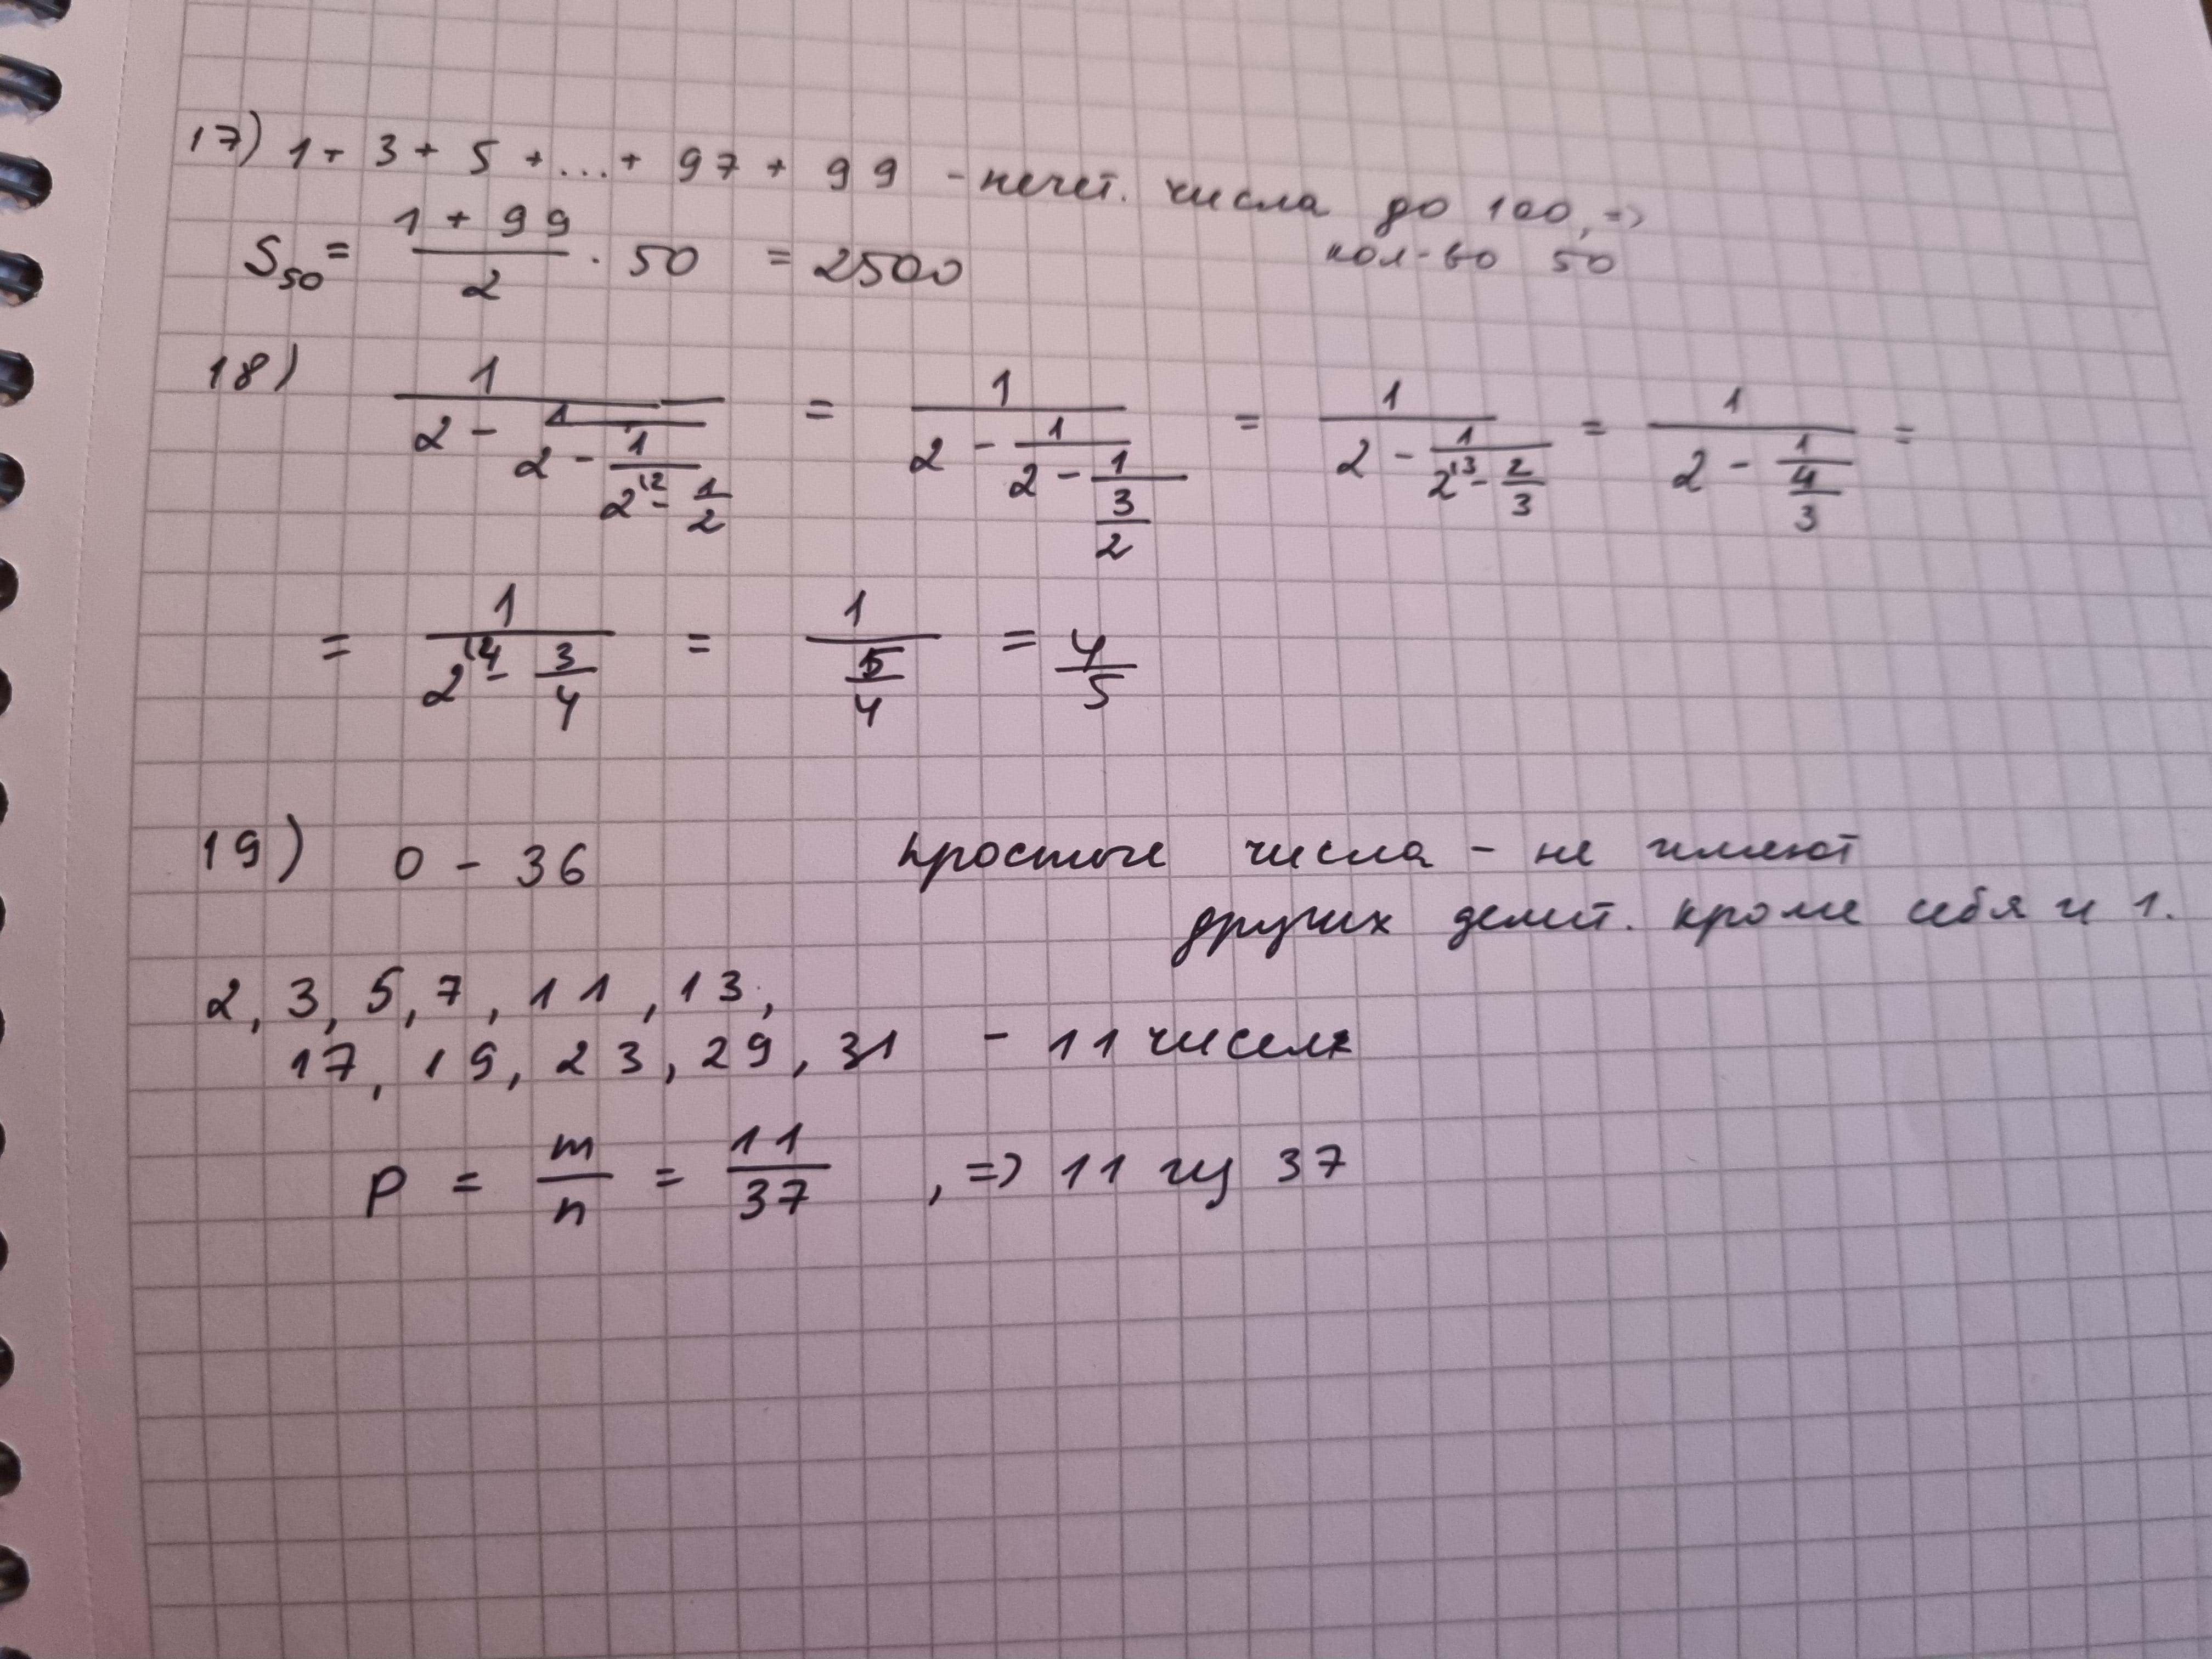 17) 1 + 3 + 5 + ... + 97 + 99 - нечет. числа до 100, =>
кол-во 50
S₅₀ = (1 + 99)/2 · 50 = 2500
18) 1/(2 - 1/(2 - 1/(2 - 1/2))) = 1/(2 - 1/(2 - 1/(3/2))) = 1/(2 - 1/(2 - 2/3)) = 1/(2 - 1/(4/3)) =
= 1/(2 - 3/4) = 1/(5/4) = 4/5
19) 0 - 36 простые числа - не имеют
других делит. кроме себя и 1.
2, 3, 5, 7, 11, 13,
17, 19, 23, 29, 31 - 11 чисел
P = m/n = 11/37, => 11 из 37